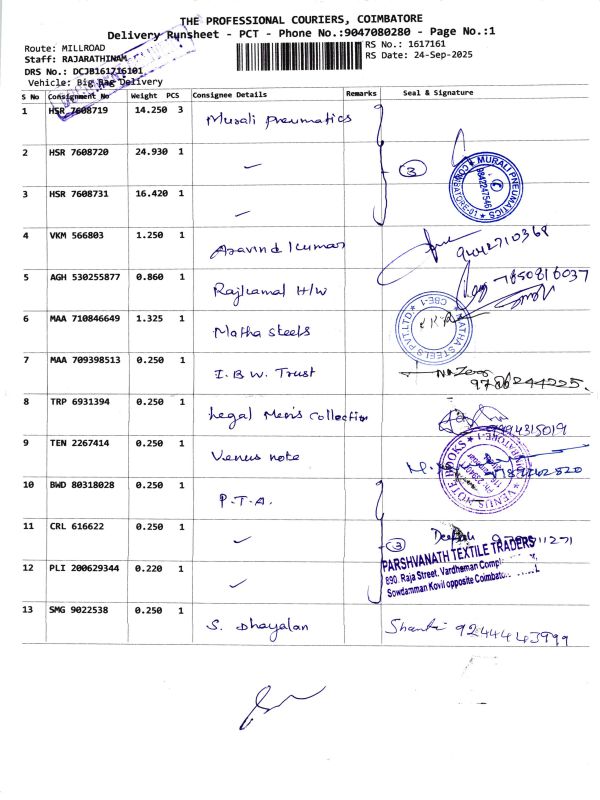 THE PROFESSIONAL COURIERS, COIMBATORE
Delivery Runsheet - PCT - Phone No.:9047080280 - Page No.:1
Route: MILLROAD
RS No.: 1617161
Staff: RAJARATHINAM
RS Date: 24-Sep-2025
DRS No.: DCJB161716101
Vehicle: Big Bag Delivery
S No Consignment No Weight PCS Consignee Details Remarks Seal & Signature
1 HSR 7608719 14.250 3 Murali Pneumatics
2 HSR 7608720 24.930 1 〃 3
MURALI PNEUMATICS
9842247546
COIMBATORE-01
3 HSR 7608731 16.420 1 〃
4 VKM 566803 1.250 1 Aravind kumar 9442710368
5 AGH 530255877 0.860 1 Rajkamal H/W 7850816037
6 MAA 710846649 1.325 1 Matha steels
MATHA STEELS PVT.LTD
CBE-1
7 MAA 709398513 0.250 1 I.B.W. Trust
8 TRP 6931394 0.250 1 Legal Men's Collection 9994315019
9 TEN 2267414 0.250 1 Venus note
VENUS NOTE BOOKS
10 BWD 80318028 0.250 1 P.T.A.
11 CRL 616622 0.250 1 〃 3 Deepak
PARSHVANATH TEXTILE TRADERS
690, Raja Street, Vardhaman
Sowdamman Kovil opposite Coimbatore
12 PLI 200629344 0.220 1 〃
13 SMG 9022538 0.250 1 S. Dhayalan Shanti 9244443999